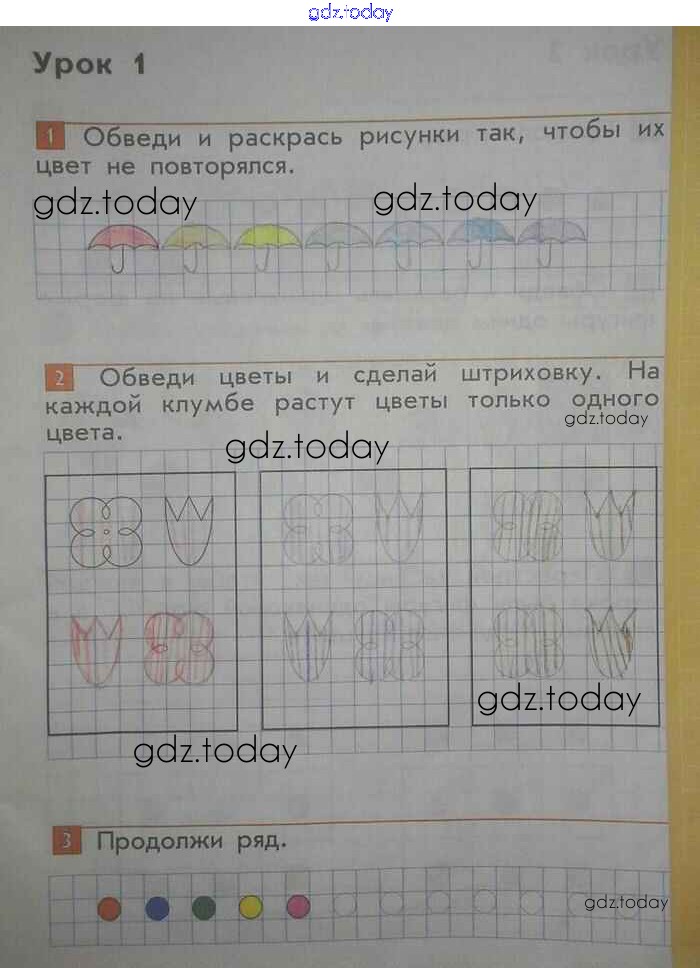 gdz.today
Урок 1
1 Обведи и раскрась рисунки так, чтобы их
цвет не повторялся.
gdz.today gdz.today
2 Обведи цветы и сделай штриховку. На
каждой клумбе растут цветы только одного
gdz.today
цвета.
gdz.today
gdz.today
gdz.today
3 Продолжи ряд.
gdz.today